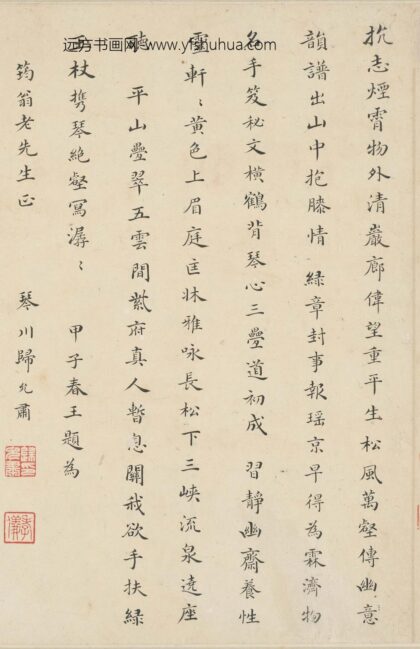 远方书画网 www.yfshuhua.com
抗志煙霄物外清巖廊偉望重平生松風萬壑傳幽意
韻譜出山中抱膝情 綠章封事報瑤京早得為霖濟物
名手笈秘文橫鶴背琴心三疊道初成 習靜幽齋養性
靈軒〻黃色上眉庭匡牀雅咏長松下三峽流泉遶座
聽 平山疊翠五雲間紫府真人暫息關我欲手扶綠
玉杖攜琴絕壑寫潺〻 甲子春王題為
筠翁老先生正 琴川歸允肅